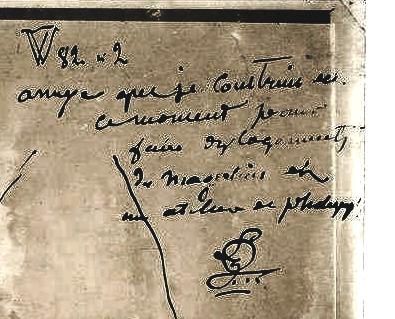 82. n 2
que je construis en
ce moment pour
faire des logements,
de magasins et
un atelier de photogr!